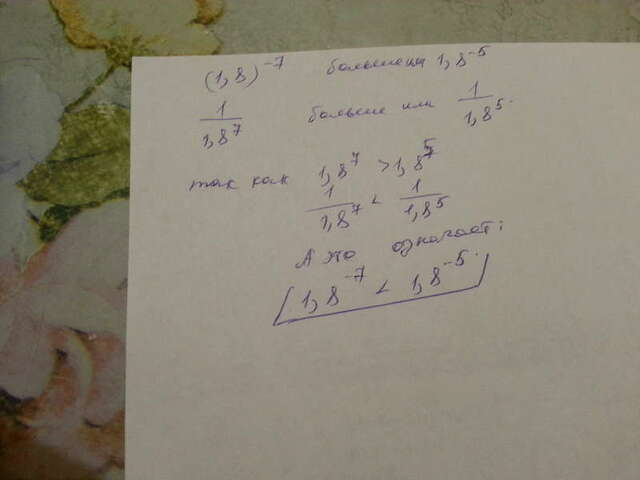 (1,8)⁻⁷ больше или 1,8⁻⁵
1/1,8⁷ больше или 1/1,8⁵.
так как 1,8⁷ > 1,8⁵
1/1,8⁷ < 1/1,8⁵
А это означает:
1,8⁻⁷ < 1,8⁻⁵.